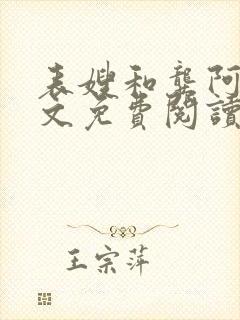 表嫂和龔阿
文免費閱讀
王宗萍